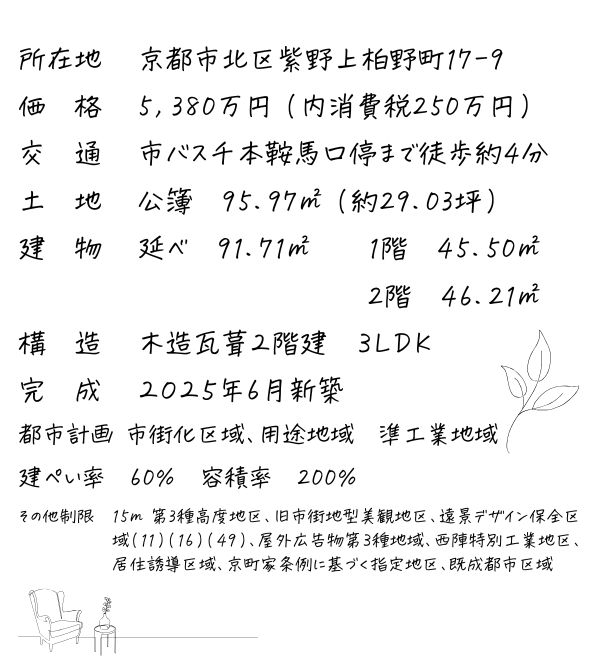 所在地　京都市北区紫野上柏野町17-9
価　格　5,380万円（内消費税250万円）
交　通　市バス千本鞍馬口停まで徒歩約4分
土　地　公簿　95.97㎡（約29.03坪）
建　物　延べ　91.71㎡　　1階　45.50㎡
2階　46.21㎡
構　造　木造瓦葺2階建　3LDK
完　成　2025年6月新築
都市計画　市街化区域、用途地域　準工業地域
建ぺい率　60%　容積率　200%
その他制限　15m 第3種高度地区、旧市街地型美観地区、遠景デザイン保全区
域(11)(16)(49)、屋外広告物第3種地域、西陣特別工業地区、
居住誘導区域、京町家条例に基づく指定地区、既成都市区域